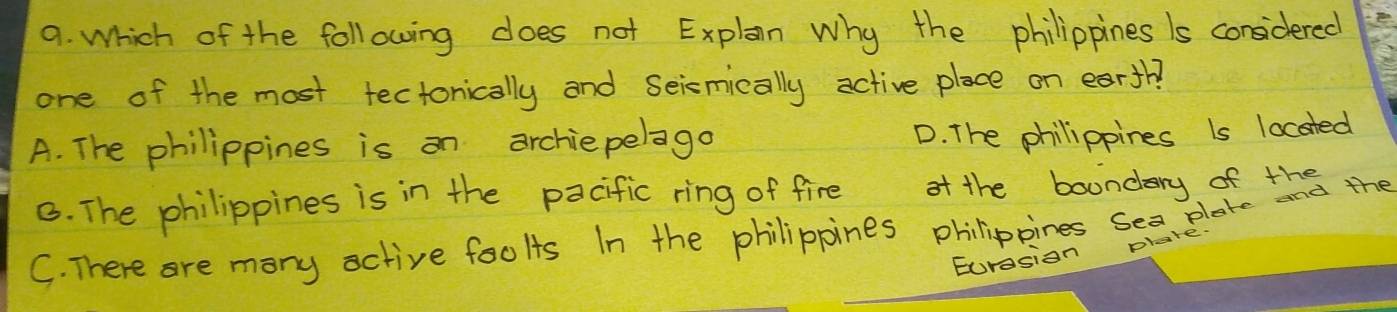 9. Which of the following does not Explan Why the philippines Is considered
one of the most tectonically and Seismically active place on earth?
A. The philippines is an archiepelago
B. The philippines is in the pacific ring of fire
C. There are many active faolts In the philippines
D. The philippines Is located
at the boundary of the
philippines Sea plate and the
Eurasian plate.